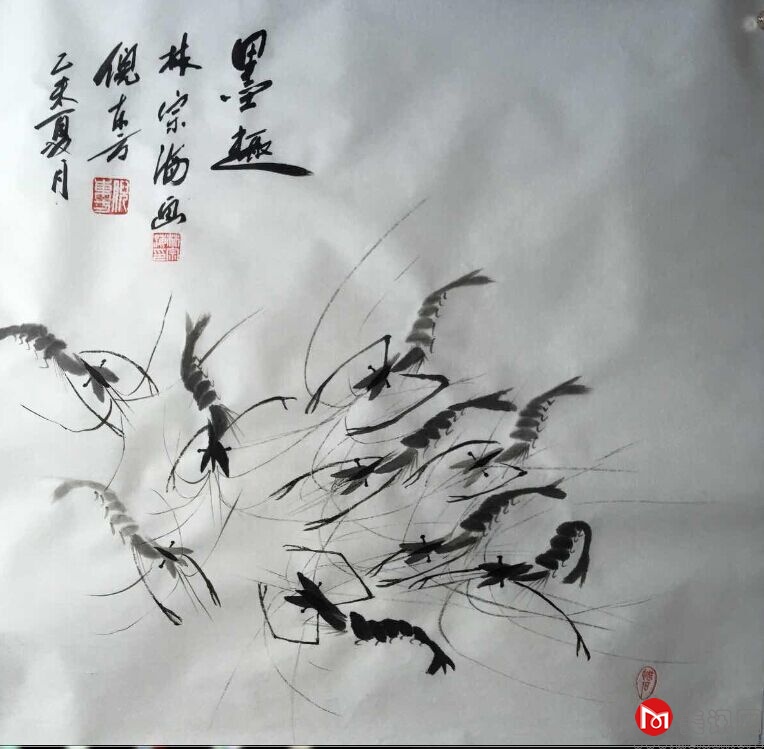 墨趣
林宗海画
倪东方
乙未夏月